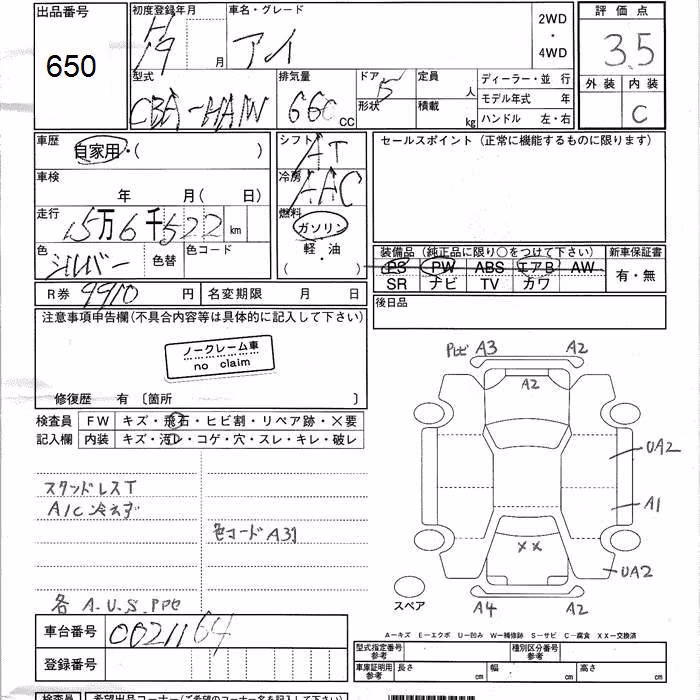 出品番号 初度登録年月 車名・グレード 2WD・4WD 評価点
650
H19 月 アイ 3.5
外装 内装
C
型式 排気量 ドア 定員 人 ディーラー・並行
CBA-HA1W 660 cc 5 形状 積載 kg モデル年式 年
ハンドル 左・右
車歴 シフト セールスポイント（正常に機能するものに限ります）
自家用・（ ） AT
車検 冷房
年 月（ 日） AAC
走行 燃料
5万6千522km ガソリン
色 色替 色コード 軽・油
シルバー （ ）
装備品（純正品に限り○をつけて下さい） 新車保証書
PS PW ABS エアB AW 有・無
SR ナビ TV カワ
R券 9910 円 名変期限 月 日
後日品
注意事項申告欄（不具合内容等は具体的に記入して下さい）
ノークレーム車
no claim
修復歴 有 〔箇所 〕
検査員 FW キズ・飛石・ヒビ割・リペア跡・×要
記入欄 内装 キズ・汚レ・コゲ・穴・スレ・キレ・破レ
A3 A2
A2
UA2
A1
スタッドレスT
A/C 冷えず
色コード A31
××
UA2
各 A.U.S.
スペア
A4 A2
車台番号 0021164
A－キズ E－エクボ U－凹み W－補修跡 S－サビ C－腐食 XX－交換済
登録番号
型式指定番号 参考 種別区分番号 参考
車庫証明用 参考 長さ cm 幅 cm 高さ cm
検査員 希望出品コーナー（ご希望のコーナー名を記入下さい）